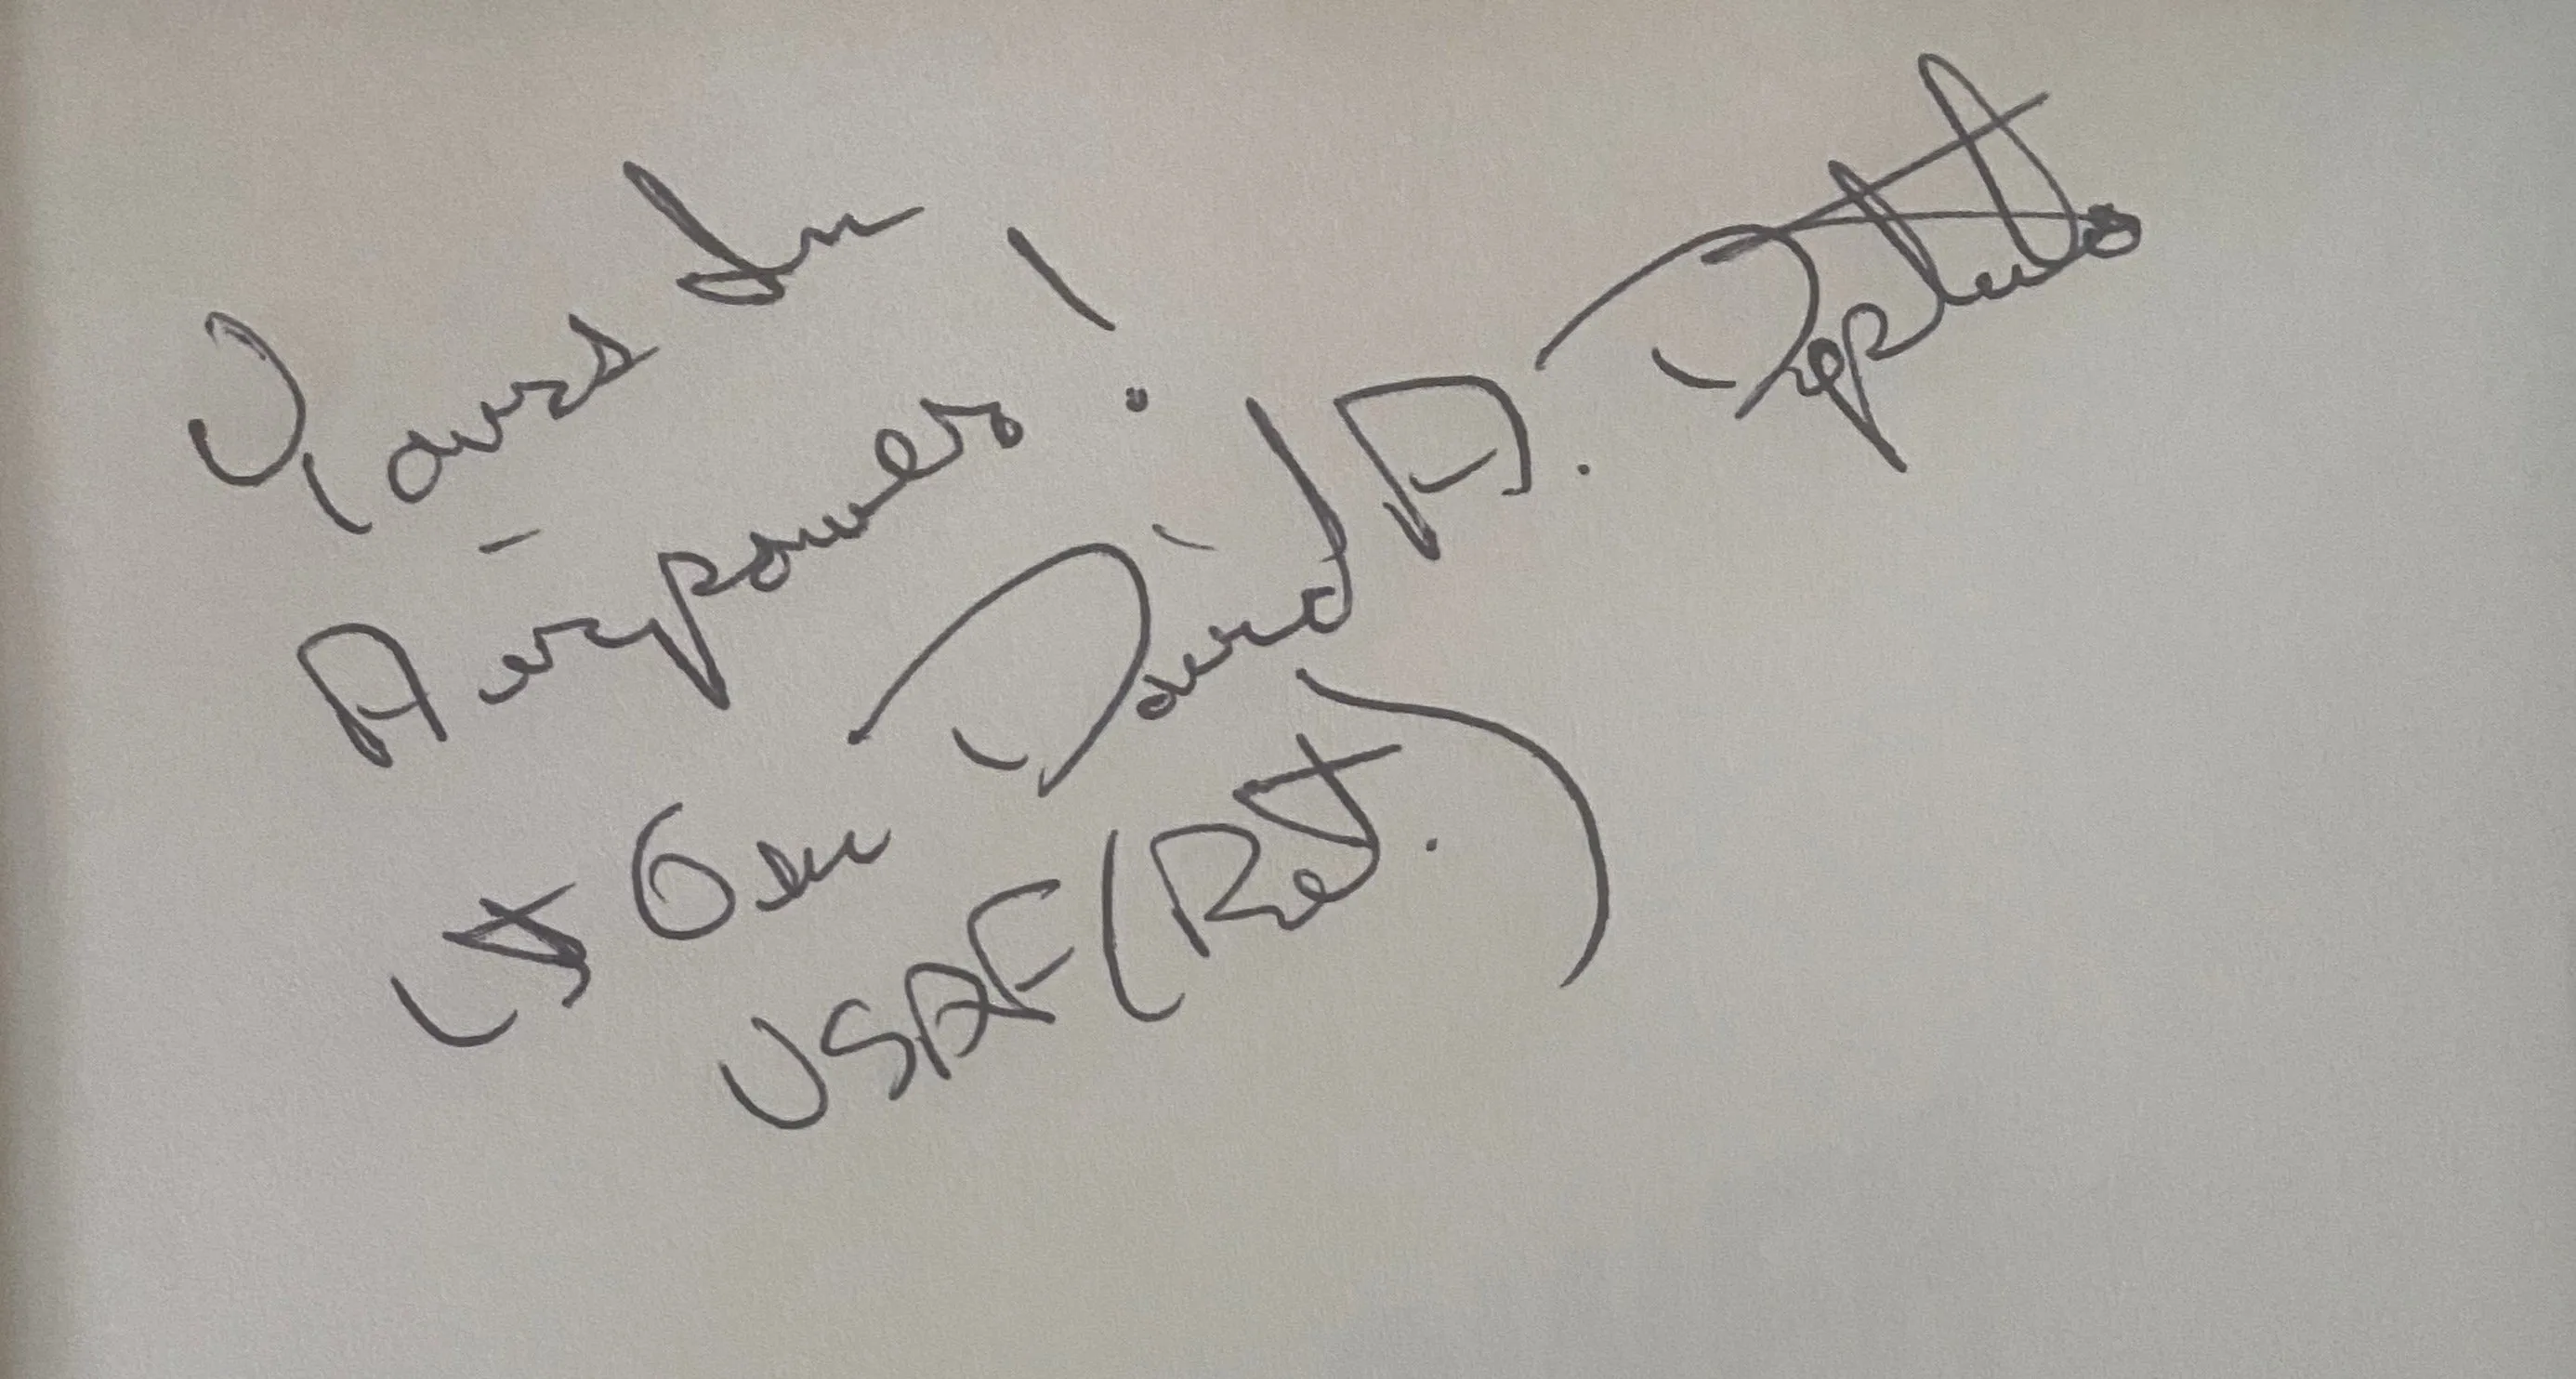 Yours In
Airpower!
Lt Gen David A. Deptula
USAF (Ret.)